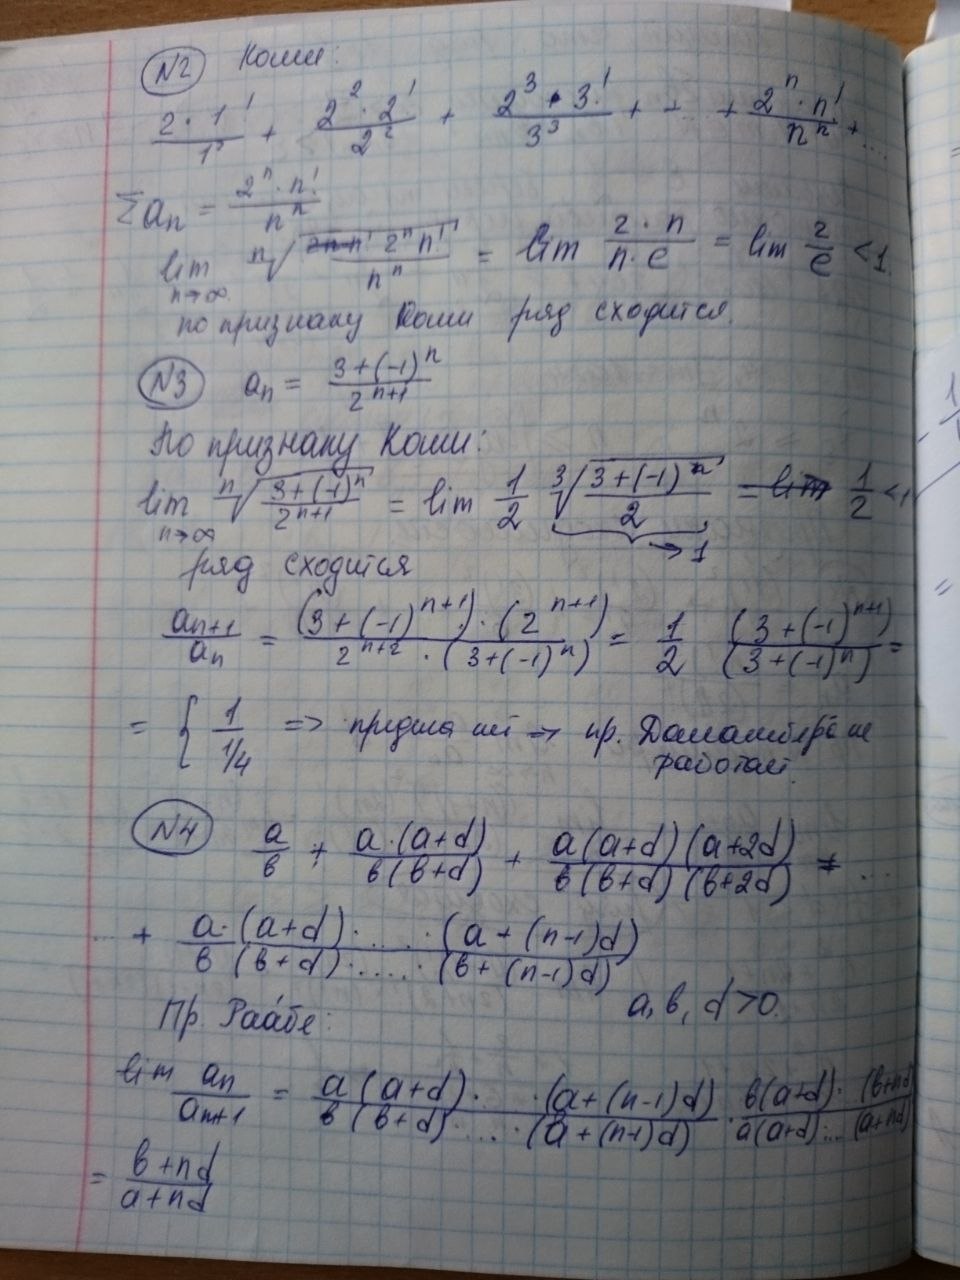 N2 Коши:
2·1!/1¹ + 2²·2!/2² + 2³·3!/3³ + ... + 2ⁿ·n!/nⁿ + ...
Σaₙ = 2ⁿ·n!/nⁿ
lim n→∞ ⁿ√(2ⁿn!/nⁿ) = lim 2·n/n·e = lim 2/e < 1.
по признаку Коши ряд сходится.
N3 aₙ = 3+(-1)ⁿ/2ⁿ⁺¹
По признаку Коши:
lim n→∞ ⁿ√(3+(-1)ⁿ/2ⁿ⁺¹) = lim 1/2 ³√(3+(-1)ⁿ/2) = 1/2 < 1
→ 1
ряд сходится
aₙ₊₁/aₙ = (3+(-1)ⁿ⁺¹)·(2ⁿ⁺¹)/2ⁿ⁺²·(3+(-1)ⁿ) = 1/2 (3+(-1)ⁿ⁺¹)/(3+(-1)ⁿ) =
= { 1 1/4 => предела нет => пр. Даламбера не
работает.
N4 a/b + a·(a+d)/b(b+d) + a(a+d)(a+2d)/b(b+d)(b+2d) + ...
... + a·(a+d)·.....·(a+(n-1)d)/b(b+d)·.....·(b+(n-1)d)
a, b, d > 0.
Пр. Раабе:
lim aₙ/aₙ₊₁ = a(a+d)·...·(a+(n-1)d)/b(b+d)·...·(a+(n-1)d) · b(a+d)·(b+nd)/a(a+d)...(a+nd)
= b+nd/a+nd